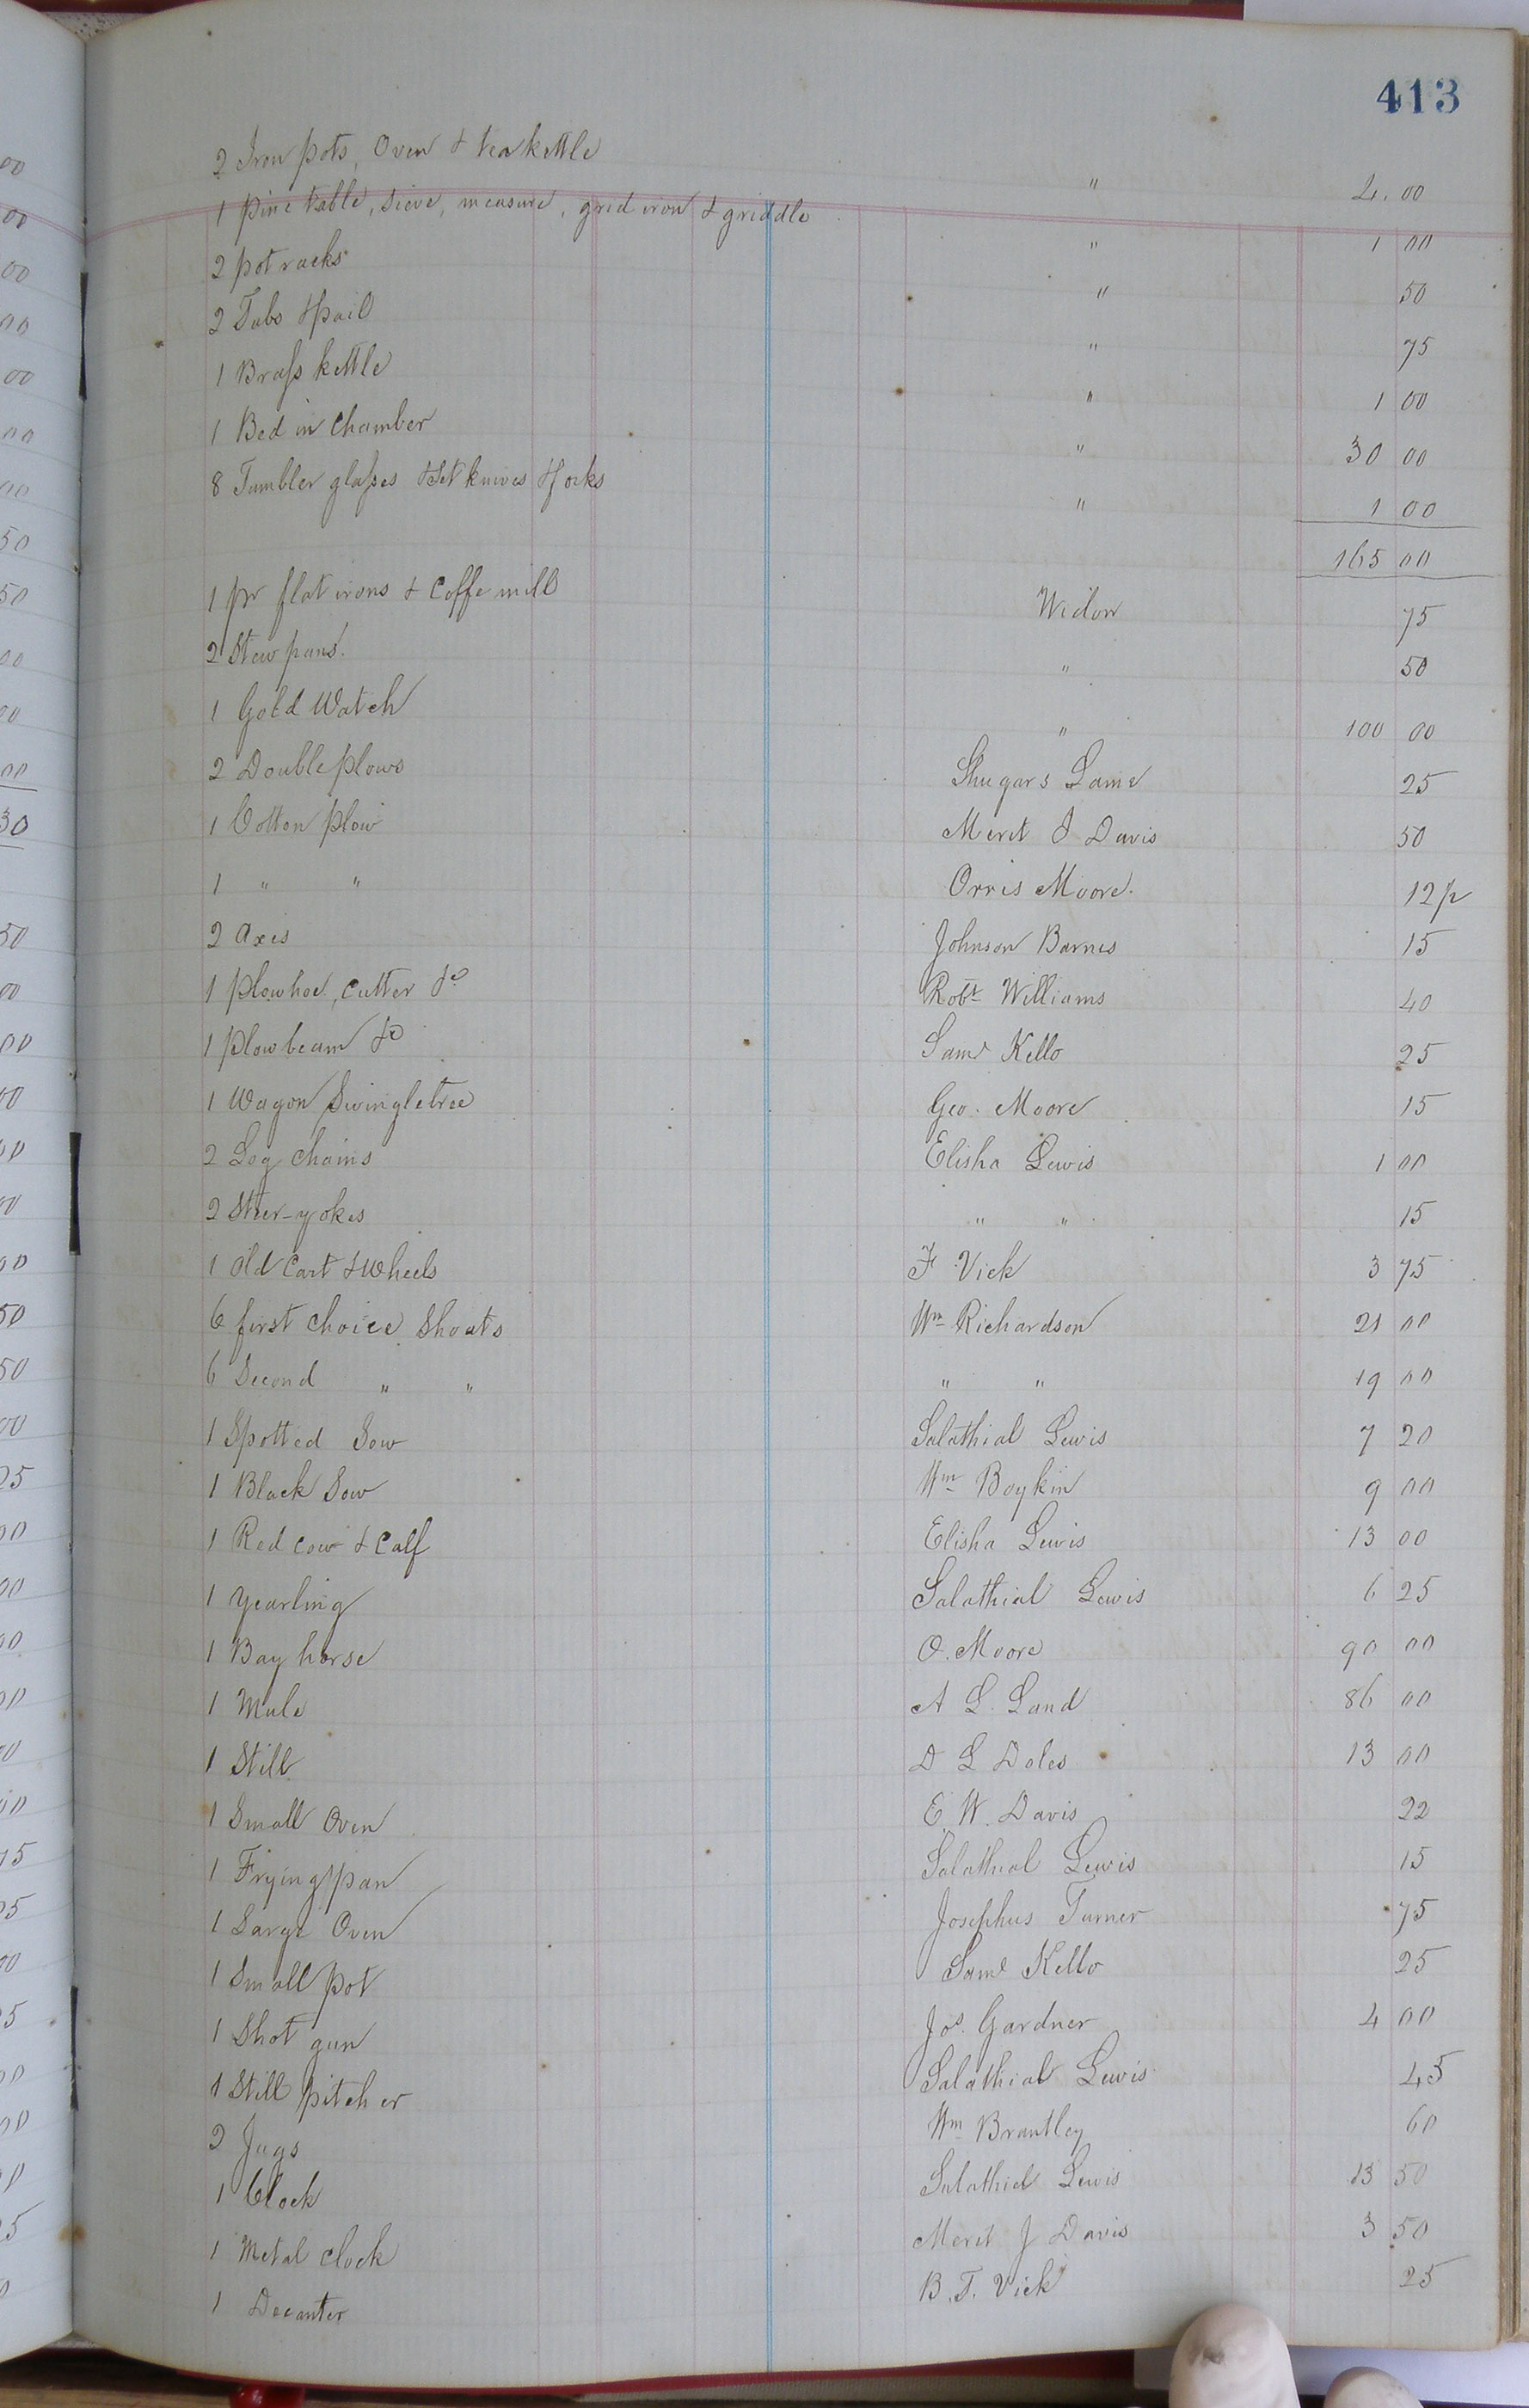 413
2 Iron pots, Oven & tea kettle " 4.00
1 pine table, sieve, measure, grid iron & griddle " 1 00
2 pot racks " 50
2 Tubs & pail " 75
1 Brass kettle " 1 00
1 Bed in Chamber " 30 00
8 Tumbler glasses & Set knives & forks " 1 00
165 00
1 pr flat irons & Coffe mill Widow 75
2 Stew pans. " 50
1 Gold Watch " 100 00
2 Double plows Shugars Lane 25
1 Cotton plow Meret J Davis 50
1 " " Orris Moore. 12½
2 Axes Johnson Barnes 15
1 plowhoe, Cutter &c Robt Williams 40
1 plow beam &c Saml Kello 25
1 Wagon Swingletree Geo. Moore 15
2 Log Chains Elisha Lewis 1 00
2 Steer-yokes " " 15
1 Old Cart & Wheels F Vick 3 75
6 first choice Shoats Wm Richardson 21 00
6 Second " " " " 19 00
1 Spotted Sow Salathial Lewis 7 20
1 Black Sow Wm Boykin 9 00
1 Red Cow & Calf Elisha Lewis 13 00
1 Yearling Salathial Lewis 6 25
1 Bay horse O. Moore 90 00
1 Mule A L. Land 86 00
1 Still D L Doles 13 00
1 Small Oven E. W. Davis 22
1 Frying pan Salathial Lewis 15
1 Large Oven Josephus Turner 75
1 Small pot Saml Kello 25
1 Shot gun Jos. Gardner 4 00
1 Still pitcher Salathial Lewis 45
2 Jugs Wm Brantley 60
1 Clock Salathiel Lewis 13 50
1 Metal clock Meret J Davis 3 50
1 Decanter B. T. Vick 25